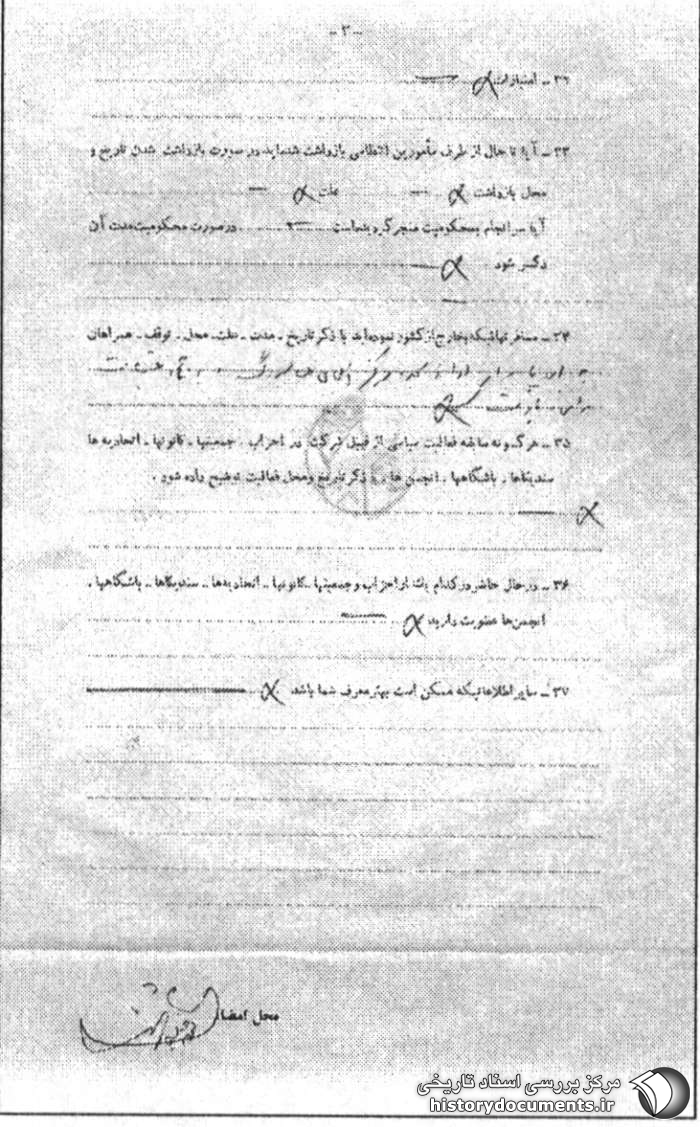 -۳-
۳۲ - امتیازات
۳۳ - آیا تا حال از طرف مأمورین انتظامی بازداشت شده‌اید در صورت بازداشت شدن تاریخ و
محل بازداشت علت
آیا سرانجام بمحکومیت منجر گردیده‌است در صورت محکومیت مدت آن
ذکر شود
۳۴ - مسافرتهائیکه بخارج از کشور نموده‌اید با ذکر تاریخ - مدت - علت - محل - توقف - همراهان
۳۵ - هرگونه سابقه فعالیت سیاسی از قبیل شرکت در احزاب - جمعیتها - کانونها - اتحادیه ها
سندیکاها - باشگاهها - انجمن ها - با ذکر تاریخ و محل فعالیت توضیح داده شود .
۳۶ - در حال حاضر در کدام یک از احزاب و جمعیتها - کانونها - اتحادیه‌ها - سندیکاها - باشگاهها .
انجمن‌ها عضویت دارید
۳۷ - سایر اطلاعاتیکه ممکن است بهتر معرف شما باشد
محل امضا
مرکز بررسی اسناد تاریخی
historydocuments.ir